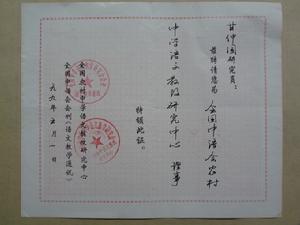 甘仲国研究员：
兹聘请您为 全国中语会农村
中学语文教改研究中心 理事
特颁此证。
全国农村中学语文教改研究中心
全国中语会会刊《语文教学通讯》
一九九〇年五月一日